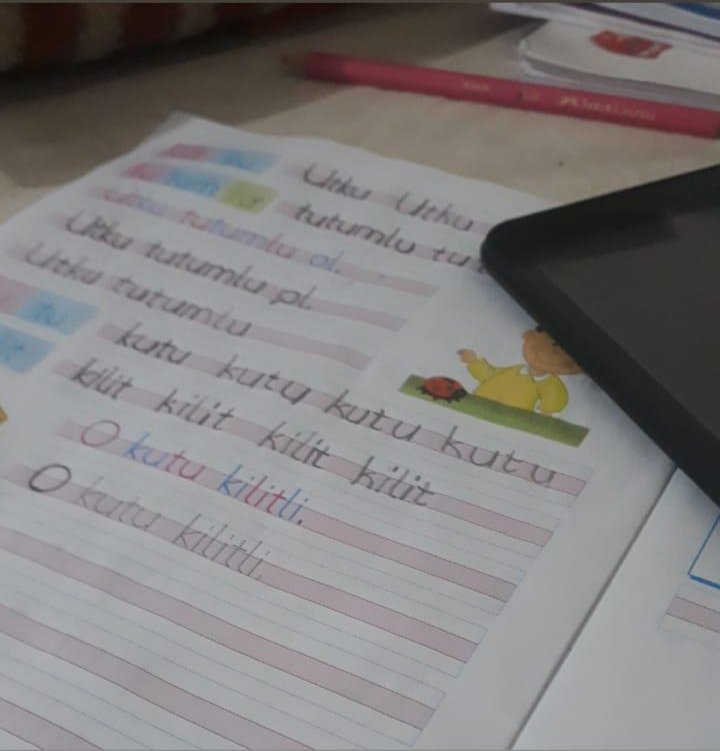 Utku Utku
tutumlu tu
Utku tutumlu ol.
Utku tutumlu ol.
Utku tutumlu
kutu kutu kutu kutu
kilit kilit kilit kilit
O kutu kilitli.
O kutu kilitli.